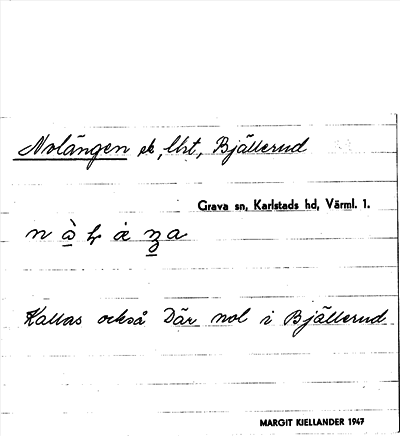 Nolängen ek, lht, Bjällerud
Grava sn, Karlstads hd, Värml. 1.
Kallas också Där nol i Bjällerud
MARGIT KIELLANDER 1947